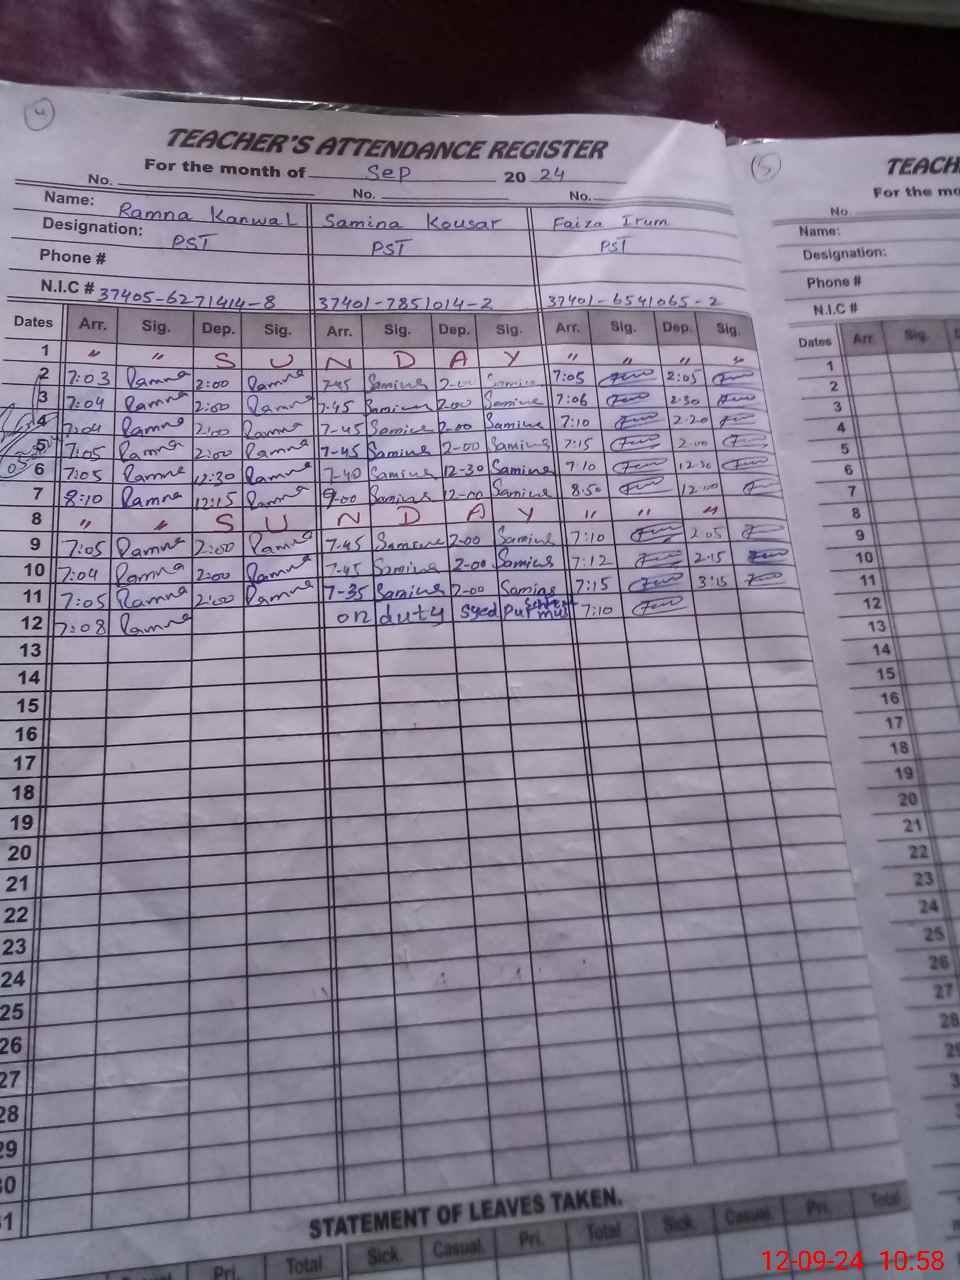 4
TEACHER'S ATTENDANCE REGISTER
For the month of Sep 20 24
No. No. No.
Name: Ramna Kanwal Samina Kousar Faiza Irum
Designation: PST PST PST
Phone #
N.I.C # 37405-6271414-8 37401-7851014-2 37401-6541065-2
Dates Arr. Sig. Dep. Sig. Arr. Sig. Dep. Sig. Arr. Sig. Dep. Sig.
1 " " S U N D A Y " " " "
2 7:03 Ramna 2:00 Ramna 7-45 Samina 2-00 Samina 7:05 2:05
3 7:04 Ramna 2:00 Ramna 7-45 Samina 2-00 Samina 7:06 2-30
4 7:04 Ramna 2:00 Ramna 7-45 Samina 2-00 Samina 7:10 2-20
5 7:05 Ramna 2:00 Ramna 7-45 Samina 2-00 Samina 7:15 2-00
6 7:05 Ramna 12:30 Ramna 7-40 Samina 12-30 Samina 7:10 12-30
7 8:10 Ramna 12:15 Ramna 9-00 Samina 12-00 Samina 8:50 12-00
8 " " S U N D A Y " " "
9 7:05 Ramna 2:00 Ramna 7-45 Samina 2-00 Samina 7:10 2-05
10 7:04 Ramna 2:00 Ramna 7-45 Samina 2-00 Samina 7:12 2-15
11 7:05 Ramna 2:00 Ramna 7-35 Samina 2-00 Samina 7:15 3:15
12 7:08 Ramna on duty Syed Pur 7:10
13
14
15
16
17
18
19
20
21
22
23
24
25
26
27
28
29
30
31
STATEMENT OF LEAVES TAKEN.
Pri. Total Sick. Casual. Pri. Total Sick. Casual. Pri. Total
5
TEACH
For the mo
No.
Name:
Designation:
Phone #
N.I.C #
Dates Arr. Sig. Dep.
1
2
3
4
5
6
7
8
9
10
11
12
13
14
15
16
17
18
19
20
21
22
23
24
25
26
27
28
12-09-24 10:58